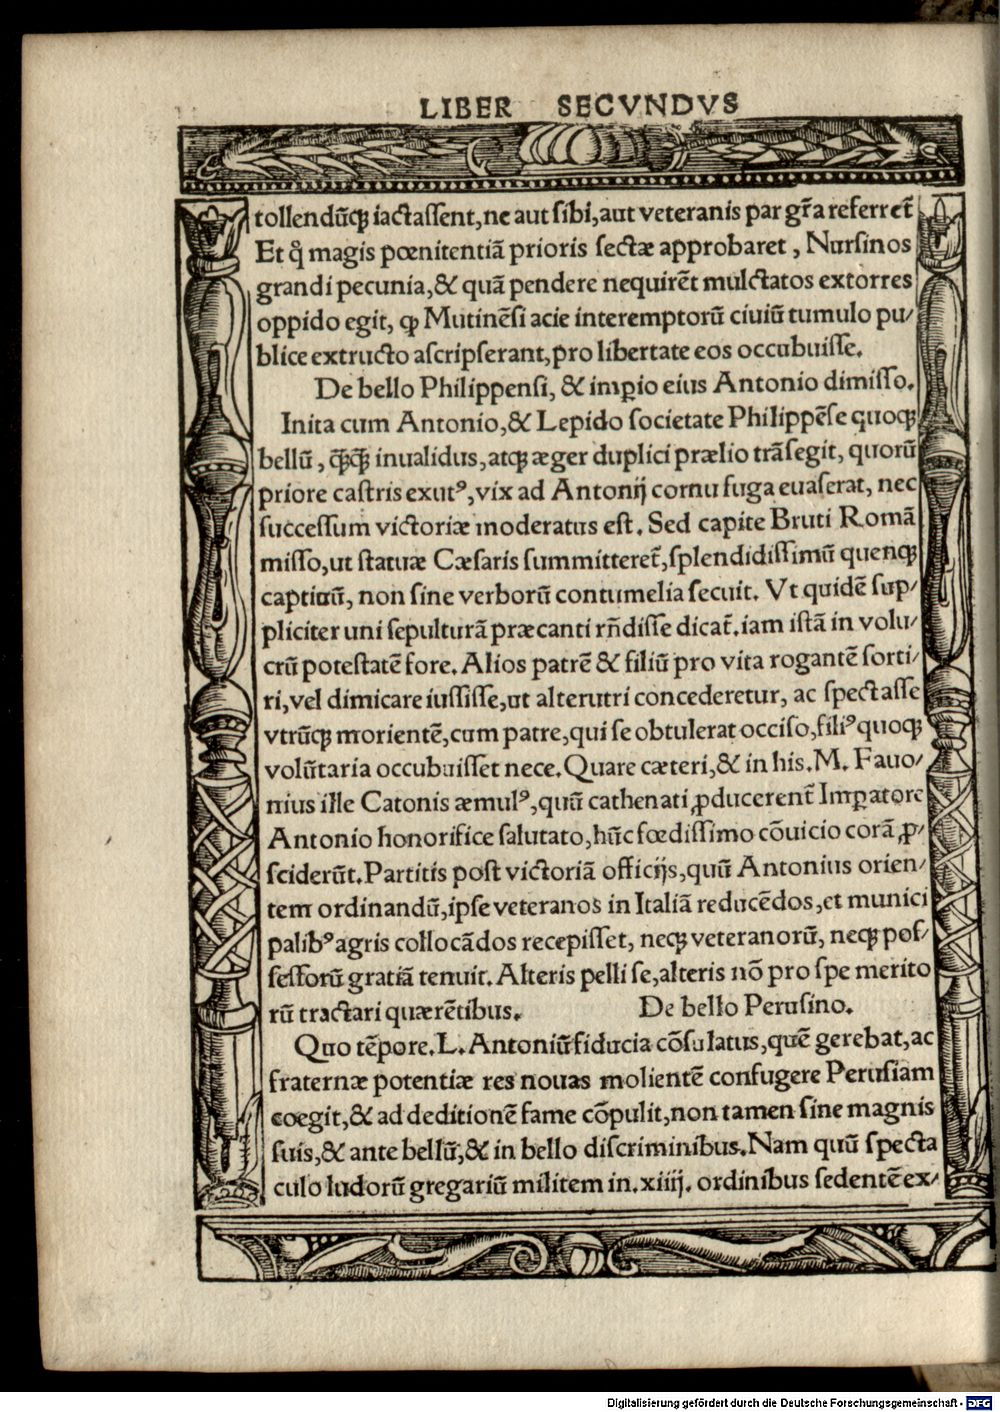 LIBER SECVNDVS
tollendũq̃ iactaſſent, ne aut ſibi, aut veteranis par gr̃a referret̃
Et q̊ magis pœnitentiã prioris ſectæ approbaret, Nurſinos
grandi pecunia, & quã pendere nequirẽt mulctatos extorres
oppido egit, ꝙ Mutinẽſi acie interemptorũ ciuiũ tumulo pu/
blice extructo aſcripſerant, pro libertate eos occubuiſſe.
De bello Philippenſi, & imꝑio eius Antonio dimiſſo.
Inita cum Antonio, & Lepido ſocietate Philippẽſe quoqꝫ
bellũ, q̃q̃ inualidus, atqꝫ æger duplici prælio trãſegit, quorũ
priore caſtris exutꝰ, vix ad Antonĳ cornu fuga euaſerat, nec
ſucceſſum victoriæ moderatus eſt. Sed capite Bruti Romã
miſſo, ut ſtatuæ Cæſaris ſummitteret̃, ſplendidiſſimũ quenqꝫ
captiuũ, non ſine verborũ contumelia ſecuit. Vt quidẽ ſup/
pliciter uni ſepulturã præcanti rñdiſſe dicat̃. iam iſtã in volu/
crũ poteſtatẽ fore. Alios patrẽ & filiũ pro vita rogantẽ ſorti/
ri, vel dimicare iuſſiſſe, ut alterutri concederetur, ac ſpectaſſe
vtrũqꝫ morientẽ, cum patre, qui ſe obtulerat occiſo, filiꝰ quoqꝫ
volũtaria occubuiſſet nece. Quare cæteri, & in his. M. Fauo/
nius ille Catonis æmulꝰ, quũ cathenati ꝓducerent̃ Imꝑatore
Antonio honorifice ſalutato, hũc fœdiſſimo cõuicio corã ꝓ/
ſciderũt. Partitis poſt victoriã officĳs, quũ Antonius orien/
tem ordinandũ, ipſe veteranos in Italiã reducẽdos, et munici
palibꝰ agris collocãdos recepiſſet, neqꝫ veteranorũ, neqꝫ poſ/
ſeſſorũ gratiã tenuit. Alteris pelli ſe, alteris nõ pro ſpe merito
rũ tractari quærẽtibus. De bello Peruſino.
Quo tẽpore. L. Antoniũ fiducia cõſulatus, quẽ gerebat, ac
fraternæ potentiæ res nouas molientẽ confugere Peruſiam
coegit, & ad deditionẽ fame cõpulit, non tamen ſine magnis
ſuis, & ante bellũ, & in bello diſcriminibus. Nam quũ ſpecta
culo ludorũ gregariũ militem in. xiiij. ordinibus ſedentẽ ex/
Digitalisierung gefördert durch die Deutsche Forschungsgemeinschaft - DFG